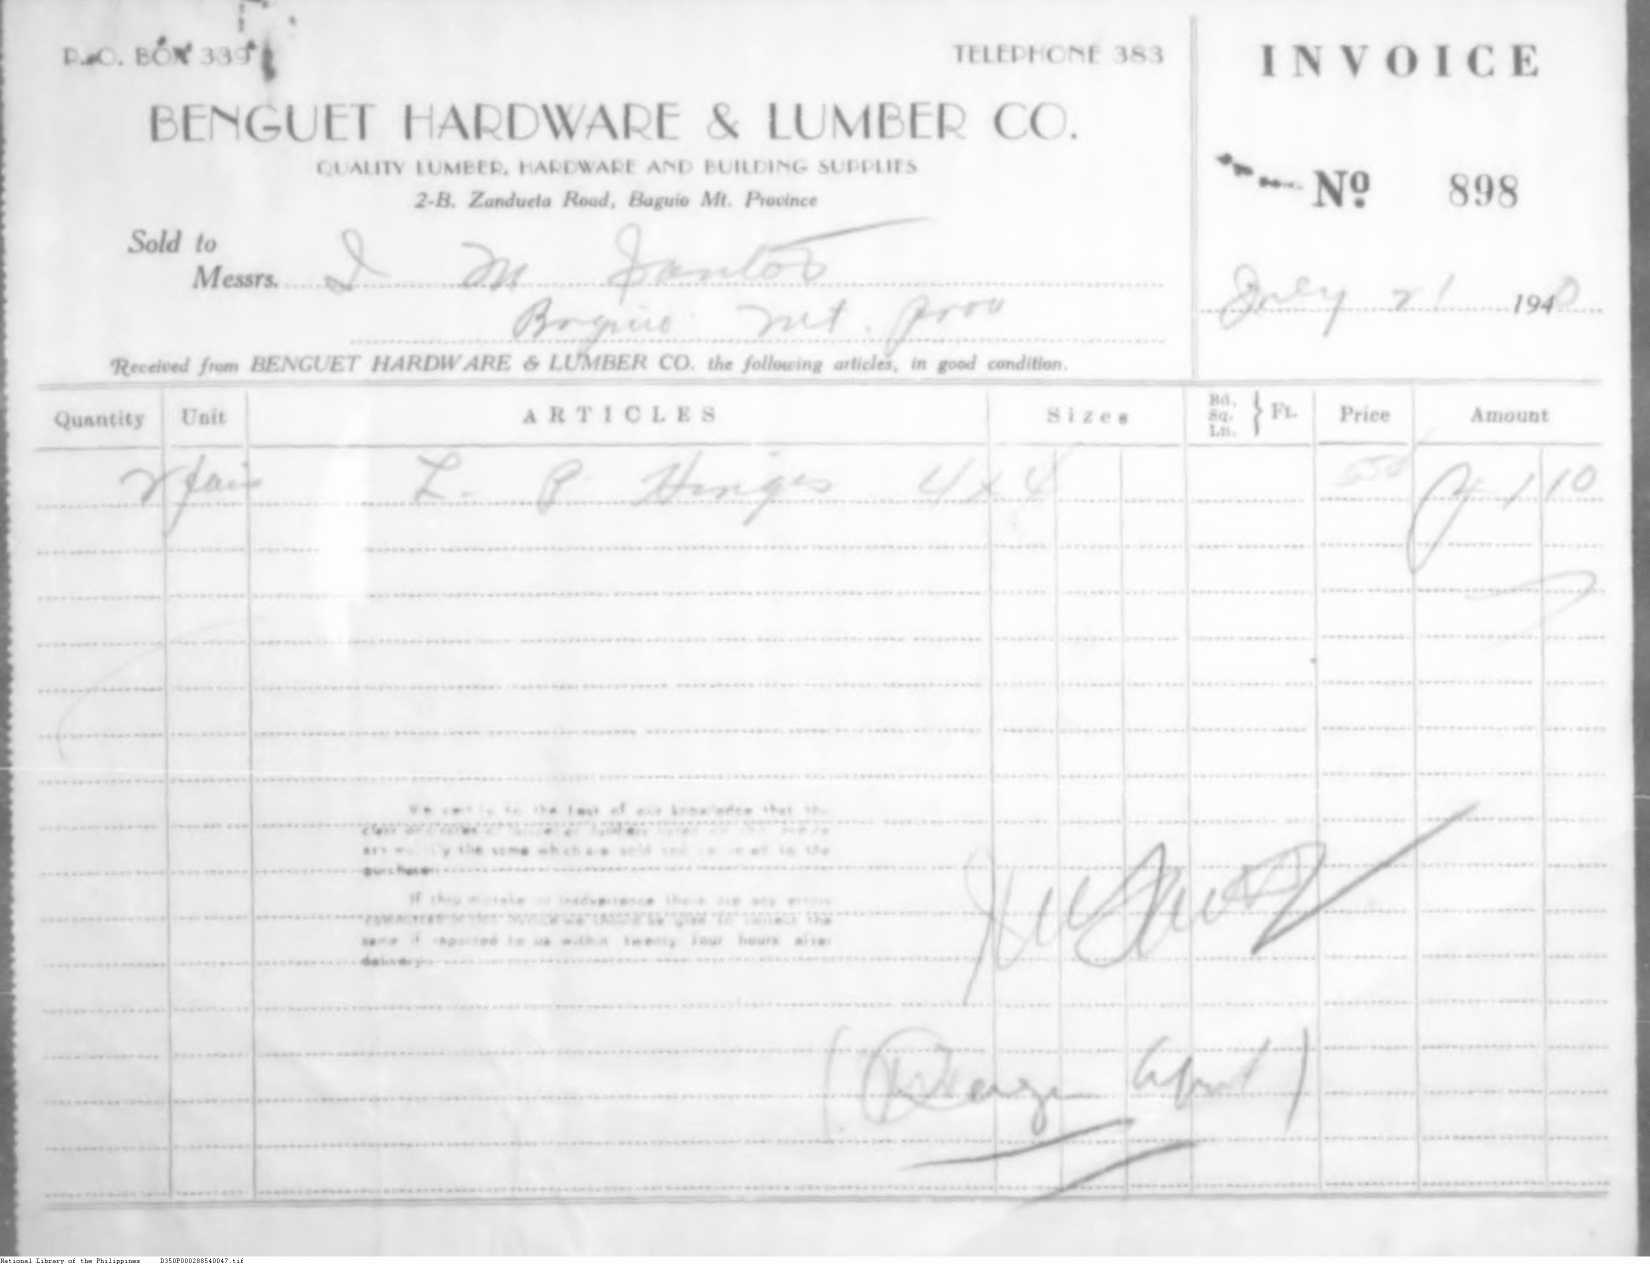 P.O. BOX 339
TELEPHONE 383
INVOICE
BENGUET HARDWARE & LUMBER CO.
QUALITY LUMBER, HARDWARE AND BUILDING SUPPLIES
2-B. Zandueta Road, Baguio Mt. Province
Nº 898
Sold to
Messrs. I M Santos
Baguio Mt. Prov
July 21 1940
Received from BENGUET HARDWARE & LUMBER CO. the following articles, in good condition.
Quantity Unit ARTICLES Sizes Bd. Sq. Ln. } Ft. Price Amount
2 pair L. P. Hinges 4 x 4 .550 ₱ 1 10
We certify to the best of our knowledge that the
are the same which are sold to the
purchaser
If thru mistake or inadvertence there are any errors
committed in this invoice we should be glad to correct the
same if reported to us within twenty four hours after
delivery.
National Library of the Philippines D350P000288540047.tif